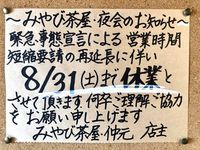 〜みやび茶屋・夜会のお知らせ〜
緊急事態宣言による営業時間
短縮要請の再延長に伴い
8/31(土)まで休業と
させて頂きます何卒ご理解ご協力
をお願い申し上げます
みやび茶屋仲元 店主